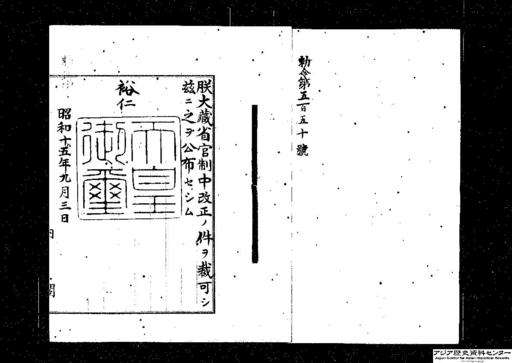 勅令第五百五十號
朕大藏省官制中改正ノ件ヲ裁可シ
茲ニ之ヲ公布セシム
裕仁
天皇
御璽
昭和十五年九月三日
内
閣
アジア歴史資料センター
Japan Center for Asian Historical Records